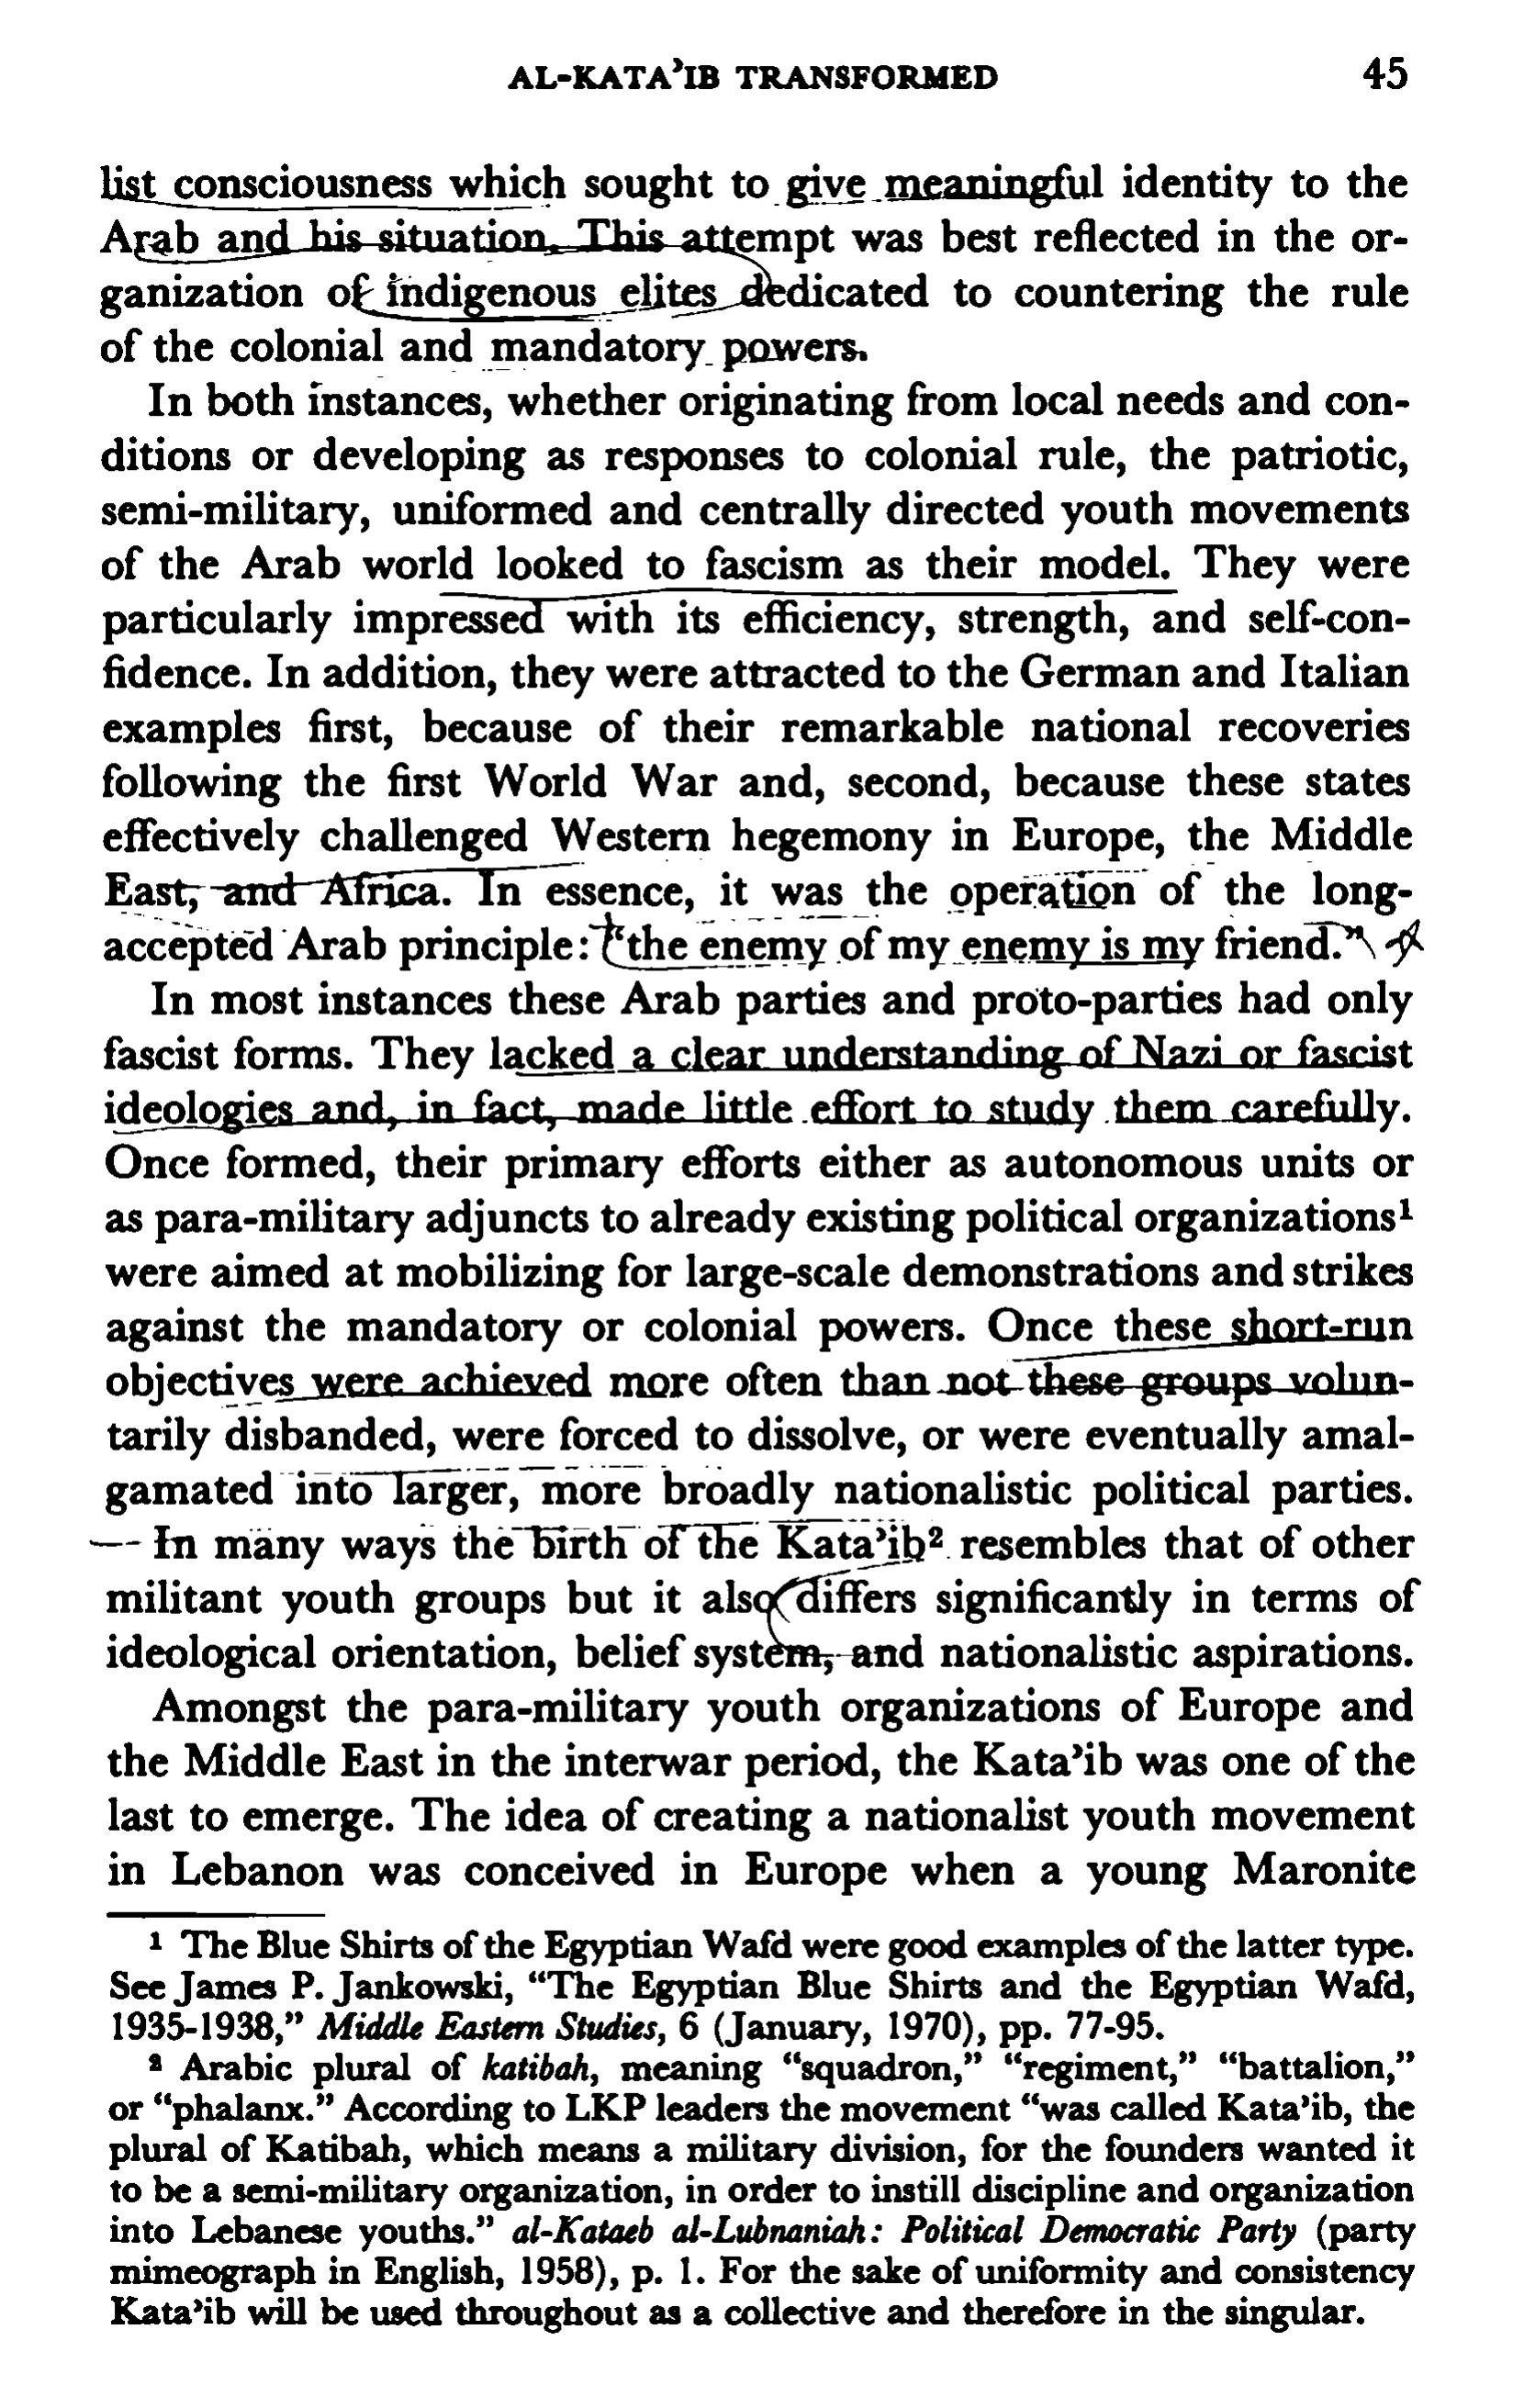 AL-KATA'IB TRANSFORMED 45
list consciousness which sought to give meaningful identity to the
Arab and his situation. This attempt was best reflected in the or-
ganization of indigenous elites dedicated to countering the rule
of the colonial and mandatory powers.
In both instances, whether originating from local needs and con-
ditions or developing as responses to colonial rule, the patriotic,
semi-military, uniformed and centrally directed youth movements
of the Arab world looked to fascism as their model. They were
particularly impressed with its efficiency, strength, and self-con-
fidence. In addition, they were attracted to the German and Italian
examples first, because of their remarkable national recoveries
following the first World War and, second, because these states
effectively challenged Western hegemony in Europe, the Middle
East, and Africa. In essence, it was the operation of the long-
accepted Arab principle: "the enemy of my enemy is my friend."
In most instances these Arab parties and proto-parties had only
fascist forms. They lacked a clear understanding of Nazi or fascist
ideologies and, in fact, made little effort to study them carefully.
Once formed, their primary efforts either as autonomous units or
as para-military adjuncts to already existing political organizations¹
were aimed at mobilizing for large-scale demonstrations and strikes
against the mandatory or colonial powers. Once these short-run
objectives were achieved more often than not these groups volun-
tarily disbanded, were forced to dissolve, or were eventually amal-
gamated into larger, more broadly nationalistic political parties.
In many ways the birth of the Kata'ib² resembles that of other
militant youth groups but it also differs significantly in terms of
ideological orientation, belief system, and nationalistic aspirations.
Amongst the para-military youth organizations of Europe and
the Middle East in the interwar period, the Kata'ib was one of the
last to emerge. The idea of creating a nationalist youth movement
in Lebanon was conceived in Europe when a young Maronite
¹ The Blue Shirts of the Egyptian Wafd were good examples of the latter type.
See James P. Jankowski, "The Egyptian Blue Shirts and the Egyptian Wafd,
1935-1938," Middle Eastern Studies, 6 (January, 1970), pp. 77-95.
² Arabic plural of katibah, meaning "squadron," "regiment," "battalion,"
or "phalanx." According to LKP leaders the movement "was called Kata'ib, the
plural of Katibah, which means a military division, for the founders wanted it
to be a semi-military organization, in order to instill discipline and organization
into Lebanese youths." al-Kataeb al-Lubnaniah: Political Democratic Party (party
mimeograph in English, 1958), p. 1. For the sake of uniformity and consistency
Kata'ib will be used throughout as a collective and therefore in the singular.